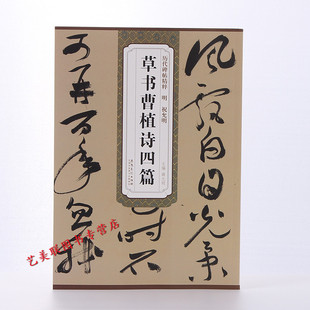 风飘白日光景
时不
可再百年忽我
历代碑帖精粹 明 祝允明
草书曹植诗四篇
艺美联图书专营店